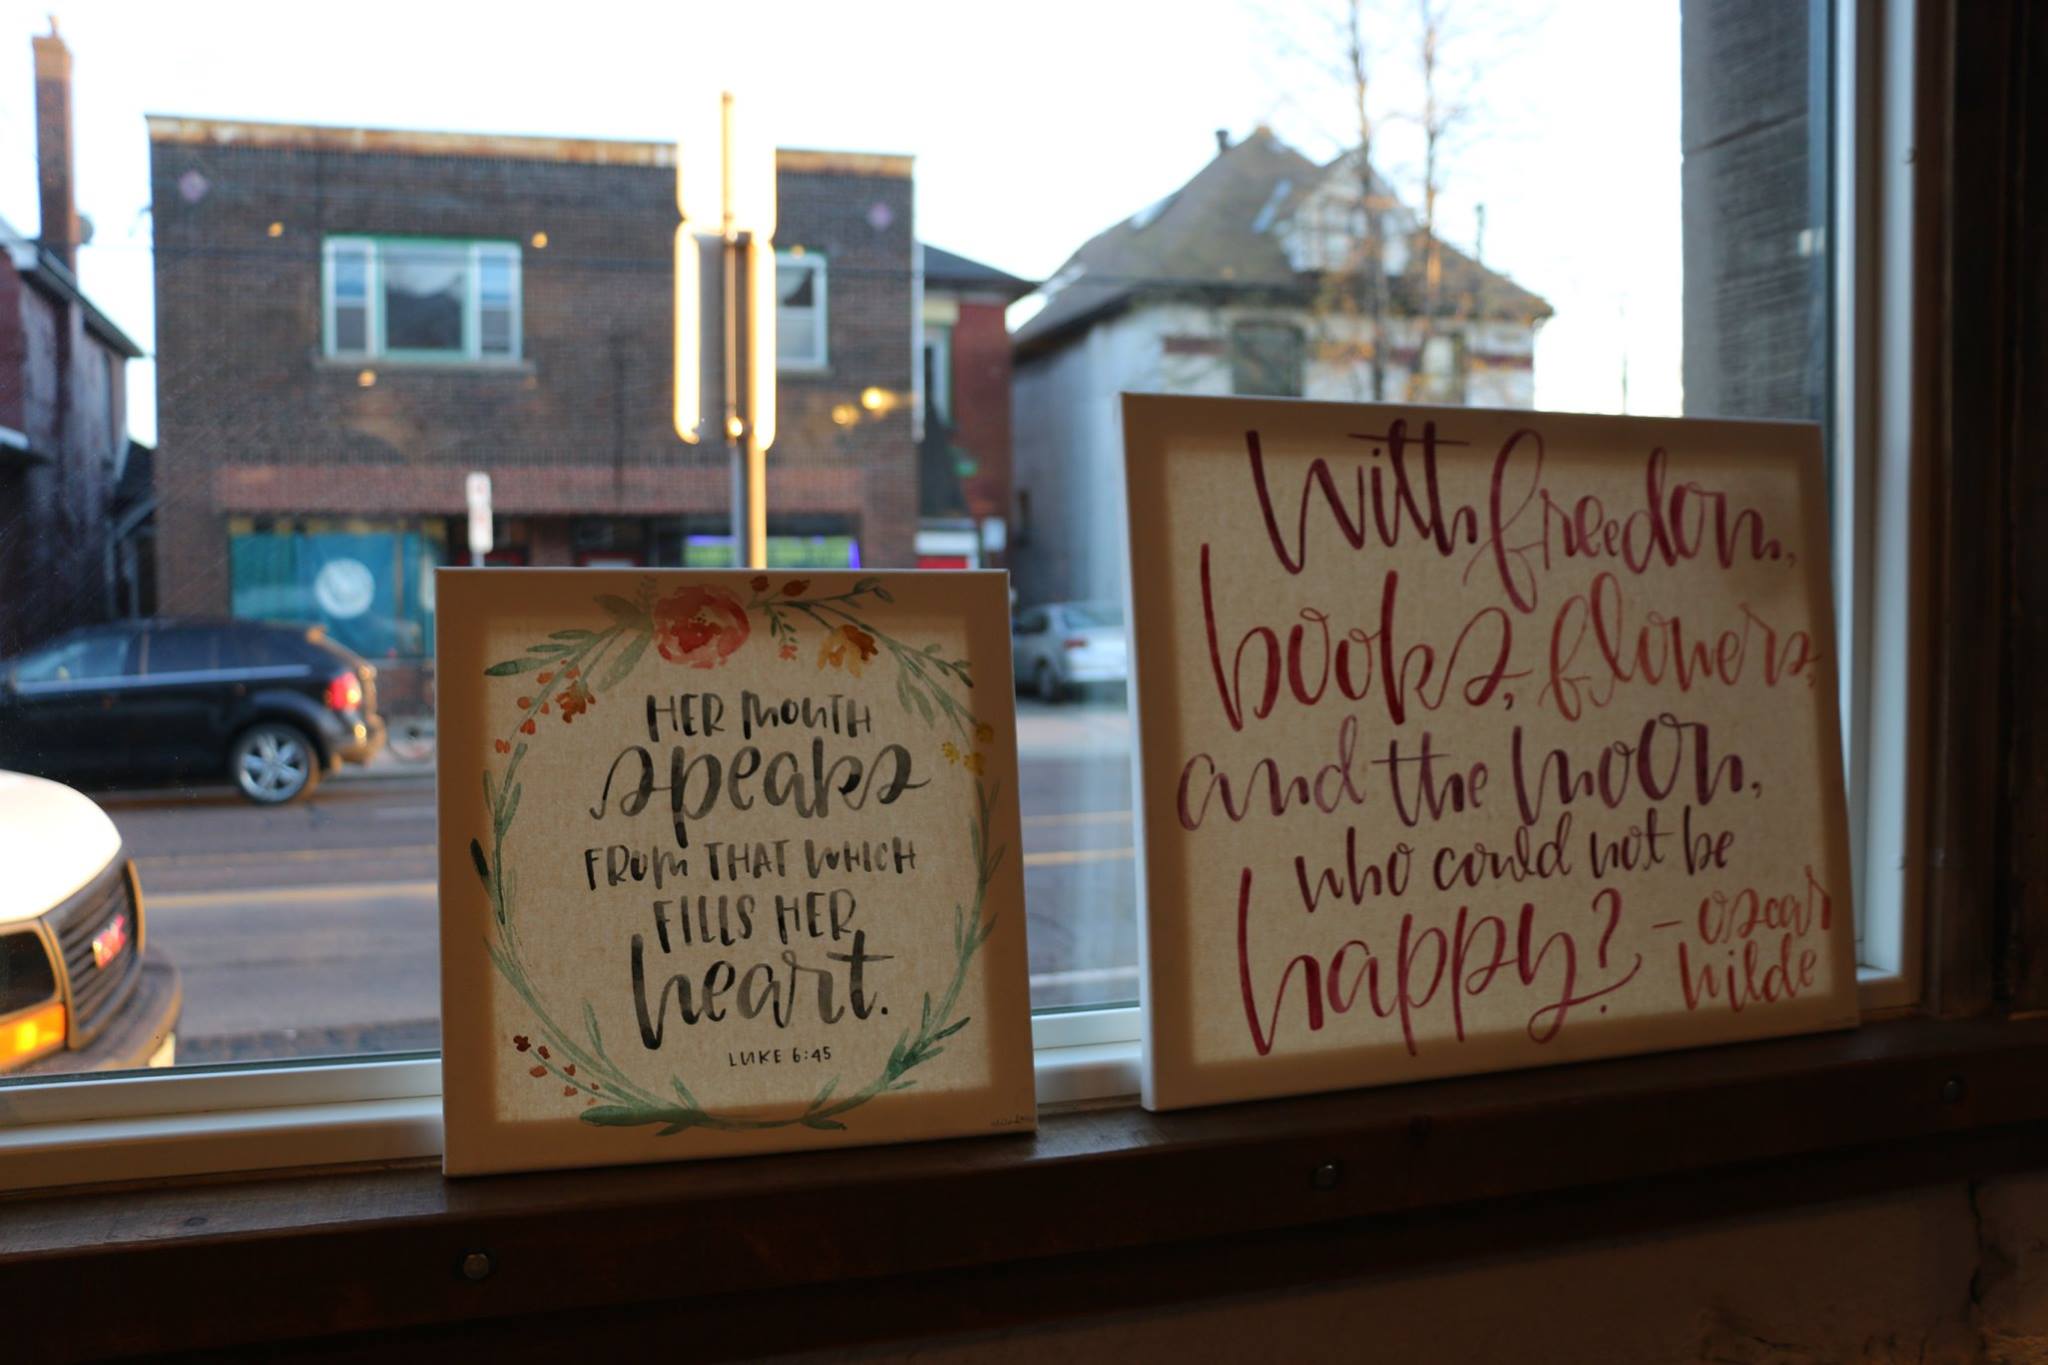 HER MOUTH
speaks
FROM THAT WHICH
FILLS HER
heart.
LUKE 6:45
With freedom,
books, flowers,
and the moon,
who could not be
happy? - Oscar
Wilde